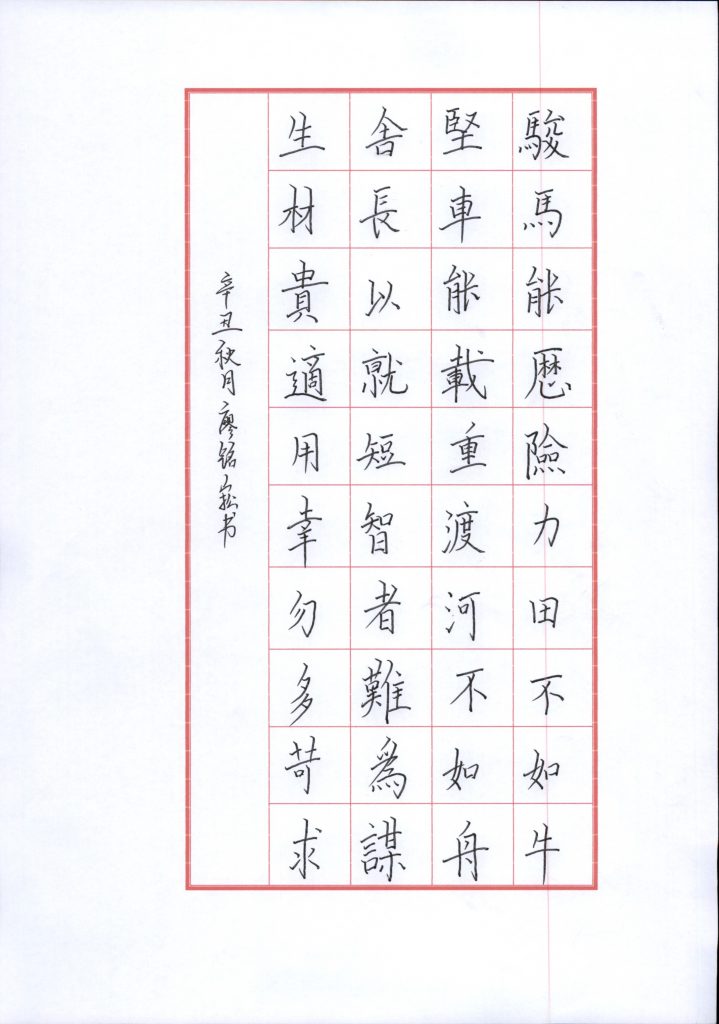 駿馬能歷險力田不如牛
堅車能載重渡河不如舟
舍長以就短智者難爲謀
生材貴適用幸勿多苛求
辛丑秋月廖铭崧书